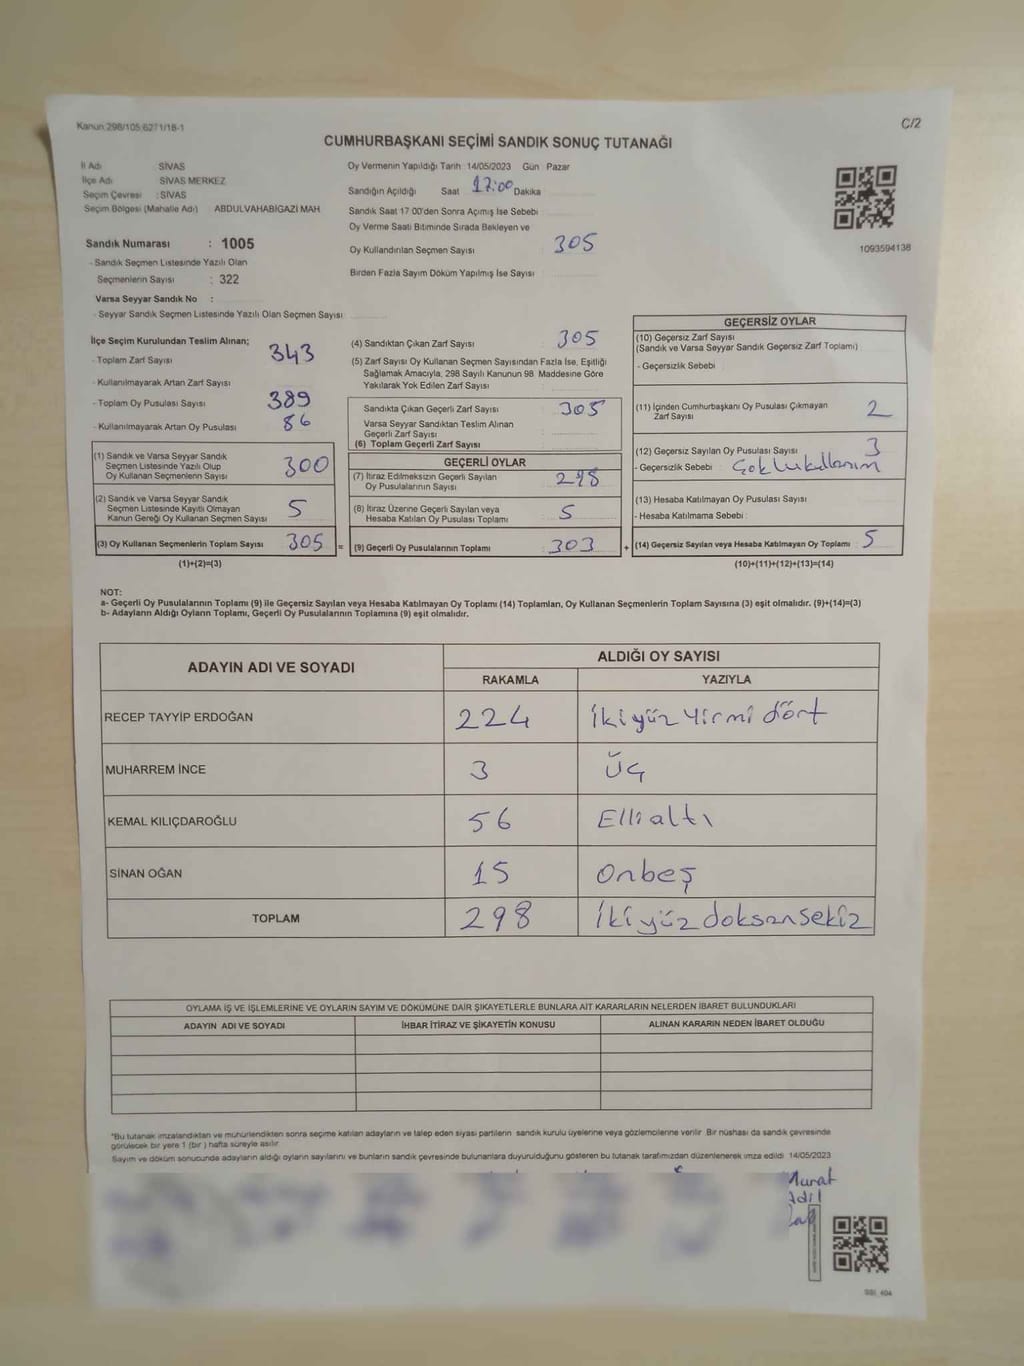 Kanun:298/105,6271/18-1
C/2
CUMHURBAŞKANI SEÇİMİ SANDIK SONUÇ TUTANAĞI
İl Adı SİVAS
İlçe Adı SİVAS MERKEZ
Seçim Çevresi : SİVAS
Seçim Bölgesi (Mahalle Adı) ABDULVAHABIGAZI MAH
Sandık Numarası : 1005
- Sandık Seçmen Listesinde Yazılı Olan
Seçmenlerin Sayısı : 322
Varsa Seyyar Sandık No :
- Seyyar Sandık Seçmen Listesinde Yazılı Olan Seçmen Sayısı
Oy Vermenin Yapıldığı Tarih 14/05/2023 Gün Pazar
Sandığın Açıldığı Saat 17:00 Dakika
Sandık Saat 17 00'den Sonra Açımış İse Sebebi
Oy Verme Saati Bitiminde Sırada Bekleyen ve
Oy Kullandırılan Seçmen Sayısı 305
Birden Fazla Sayım Döküm Yapılmış İse Sayısı
1093594138
İlçe Seçim Kurulundan Teslim Alınan;
- Toplam Zarf Sayısı 343
- Kullanılmayarak Artan Zarf Sayısı
- Toplam Oy Pusulası Sayısı 389
- Kullanılmayarak Artan Oy Pusulası 86
(1) Sandık ve Varsa Seyyar Sandık
Seçmen Listesinde Yazılı Olup
Oy Kullanan Seçmenlerin Sayısı 300
(2) Sandık ve Varsa Seyyar Sandık
Seçmen Listesinde Kayıtlı Olmayan
Kanun Gereği Oy Kullanan Seçmen Sayısı 5
(3) Oy Kullanan Seçmenlerin Toplam Sayısı 305 =
(1)+(2)=(3)
(4) Sandıktan Çıkan Zarf Sayısı 305
(5) Zarf Sayısı Oy Kullanan Seçmen Sayısından Fazla İse, Eşitliği
Sağlamak Amacıyla, 298 Sayılı Kanunun 98 Maddesine Göre
Yakılarak Yok Edilen Zarf Sayısı
Sandıkta Çıkan Geçerli Zarf Sayısı 305
Varsa Seyyar Sandıktan Teslim Alınan
Geçerli Zarf Sayısı
(6) Toplam Geçerli Zarf Sayısı
GEÇERLİ OYLAR
(7) İtiraz Edilmeksizin Geçerli Sayılan
Oy Pusulalarının Sayısı 298
(8) İtiraz Üzerine Geçerli Sayılan veya
Hesaba Katılan Oy Pusulası Toplamı 5
(9) Geçerli Oy Pusulalarının Toplamı 303 +
GEÇERSİZ OYLAR
(10) Geçersiz Zarf Sayısı
(Sandık ve Varsa Seyyar Sandık Geçersiz Zarf Toplamı)
- Geçersizlik Sebebi
(11) İçinden Cumhurbaşkanı Oy Pusulası Çıkmayan
Zarf Sayısı 2
(12) Geçersiz Sayılan Oy Pusulası Sayısı 3
- Geçersizlik Sebebi Çoklu kullanım
(13) Hesaba Katılmayan Oy Pusulası Sayısı
- Hesaba Katılmama Sebebi :
(14) Geçersiz Sayılan veya Hesaba Katılmayan Oy Toplamı 5
(10)+(11)+(12)+(13)=(14)
NOT:
a- Geçerli Oy Pusulalarının Toplamı (9) ile Geçersiz Sayılan veya Hesaba Katılmayan Oy Toplamı (14) Toplamları, Oy Kullanan Seçmenlerin Toplam Sayısına (3) eşit olmalıdır. (9)+(14)=(3)
b- Adayların Aldığı Oyların Toplamı, Geçerli Oy Pusulalarının Toplamına (9) eşit olmalıdır.
ADAYIN ADI VE SOYADI ALDIĞI OY SAYISI
RAKAMLA YAZIYLA
RECEP TAYYİP ERDOĞAN 224 İkiyüz Yirmi dört
MUHARREM İNCE 3 Üç
KEMAL KILIÇDAROĞLU 56 Elli altı
SİNAN OĞAN 15 Onbeş
TOPLAM 298 İkiyüzdoksansekiz
OYLAMA İŞ VE İŞLEMLERİNE VE OYLARIN SAYIM VE DÖKÜMÜNE DAİR ŞİKAYETLERLE BUNLARA AİT KARARLARIN NELERDEN İBARET BULUNDUKLARI
ADAYIN ADI VE SOYADI İHBAR İTİRAZ VE ŞİKAYETİN KONUSU ALINAN KARARIN NEDEN İBARET OLDUĞU
*Bu tutanak imzalandıktan ve mühürlendikten sonra seçime katılan adayların ve talep eden siyasi partilerin sandık kurulu üyelerine veya gözlemcilerine verilir Bir nüshası da sandık çevresinde
görülecek bir yere 1 (bir ) hafta süreyle asılır
Sayım ve döküm sonucunda adayların aldığı oyların sayılarını ve bunların sandık çevresinde bulunanlara duyurulduğunu gösteren bu tutanak tarafımızdan düzenlenerek imza edildi 14/05/2023
Murat
Adil